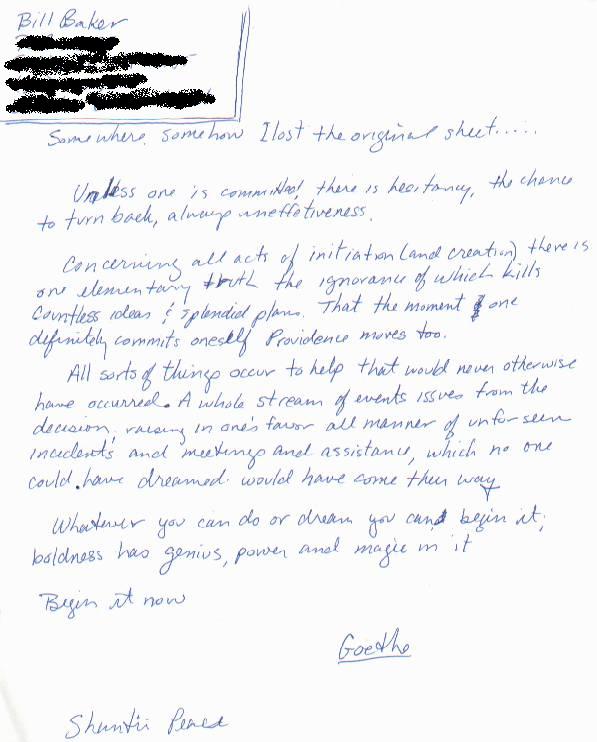 Bill Baker
Somewhere somehow I lost the original sheet.....
Unless one is committed, there is hesitancy, the chance
to turn back, always uneffetiveness.
Concerning all acts of initiation (and creation) there is
one elementary truth the ignorance of which kills
countless ideas & splendid plans. That the moment one
definitely commits oneself Providence moves too.
All sorts of things occur to help that would never otherwise
have occurred. A whole stream of events issues from the
decision, raising in one's favor all manner of unforseen
incidents and meetings and assistance, which no one
could have dreamed would have come their way
Whatever you can do or dream you can begin it,
boldness has genius, power and magic in it
Begin it now
Goethe
Shantii Peace